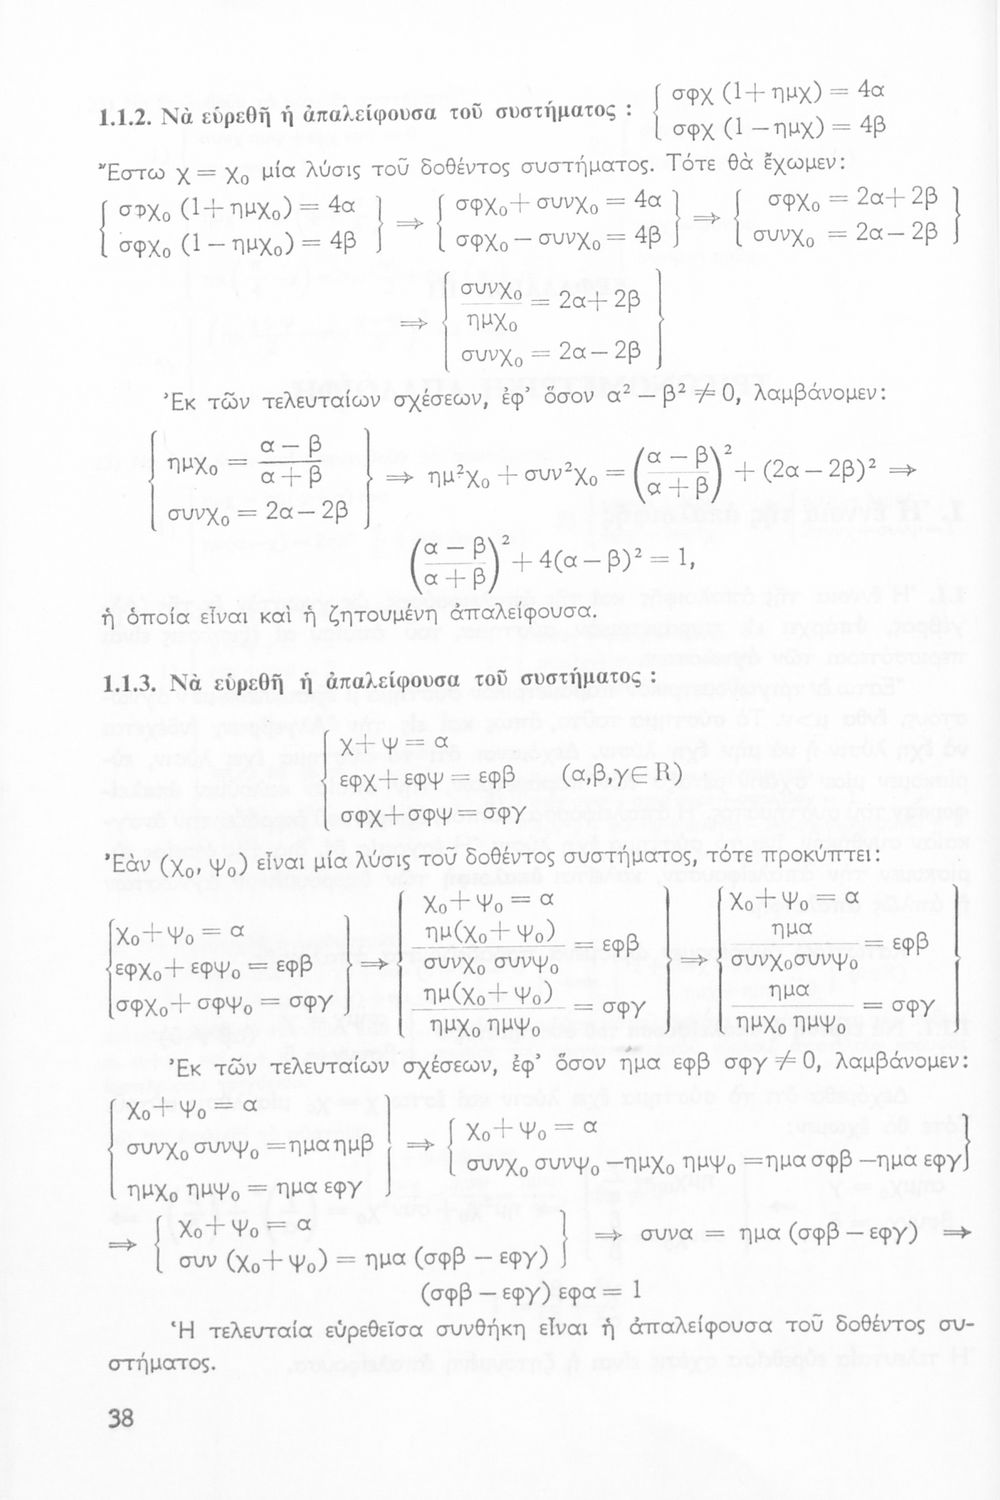 1.1.2. Νὰ εὑρεθῇ ἡ ἀπαλείφουσα τοῦ συστήματος : { σφχ (1+ημχ) = 4α
σφχ (1 —ημχ) = 4β
Ἔστω χ = χ₀ μία λύσις τοῦ δοθέντος συστήματος. Τότε θὰ ἔχωμεν:
{ σφχ₀ (1+ημχ₀) = 4α } ⇒ { σφχ₀+συνχ₀ = 4α } ⇒ { σφχ₀ = 2α+2β }
{ σφχ₀ (1 — ημχ₀) = 4β } { σφχ₀ — συνχ₀ = 4β } { συνχ₀ = 2α—2β }
⇒ { συνχ₀ / ημχ₀ = 2α+2β
συνχ₀ = 2α—2β }
Ἐκ τῶν τελευταίων σχέσεων, ἐφ' ὅσον α² — β² ≠ 0, λαμβάνομεν:
{ ημχ₀ = (α — β) / (α + β) } ⇒ ημ²χ₀ + συν²χ₀ = ((α — β) / (α + β))² + (2α — 2β)² ⇒
{ συνχ₀ = 2α—2β }
((α — β) / (α + β))² + 4(α — β)² = 1,
ἡ ὁποία εἶναι καὶ ἡ ζητουμένη ἀπαλείφουσα.
1.1.3. Νὰ εὑρεθῇ ἡ ἀπαλείφουσα τοῦ συστήματος :
{ χ+ψ = α
εφχ+εφψ = εφβ (α,β,γ∈R)
σφχ+σφψ = σφγ
Ἐὰν (χ₀, ψ₀) εἶναι μία λύσις τοῦ δοθέντος συστήματος, τότε προκύπτει:
{ χ₀+ψ₀ = α } { χ₀+ψ₀ = α } { χ₀+ψ₀ = α }
{ εφχ₀+εφψ₀ = εφβ } ⇒ { ημ(χ₀+ψ₀) / συνχ₀ συνψ₀ = εφβ } ⇒ { ημα / συνχ₀συνψ₀ = εφβ }
{ σφχ₀+σφψ₀ = σφγ } { ημ(χ₀+ψ₀) / ημχ₀ ημψ₀ = σφγ } { ημα / ημχ₀ ημψ₀ = σφγ }
Ἐκ τῶν τελευταίων σχέσεων, ἐφ' ὅσον ημα εφβ σφγ ≠ 0, λαμβάνομεν:
{ χ₀+ψ₀ = α } { χ₀+ψ₀ = α }
{ συνχ₀ συνψ₀ =ημαημβ } ⇒ { συνχ₀ συνψ₀ —ημχ₀ ημψ₀ =ημασφβ —ημα εφγ }
{ ημχ₀ ημψ₀ = ημα εφγ }
⇒ { χ₀+ψ₀ = α } ⇒ συνα = ημα (σφβ — εφγ) ⇒
{ συν (χ₀+ψ₀) = ημα (σφβ — εφγ) }
(σφβ — εφγ) εφα = 1
Ἡ τελευταία εὑρεθεῖσα συνθήκη εἶναι ἡ ἀπαλείφουσα τοῦ δοθέντος συ-
στήματος.
38